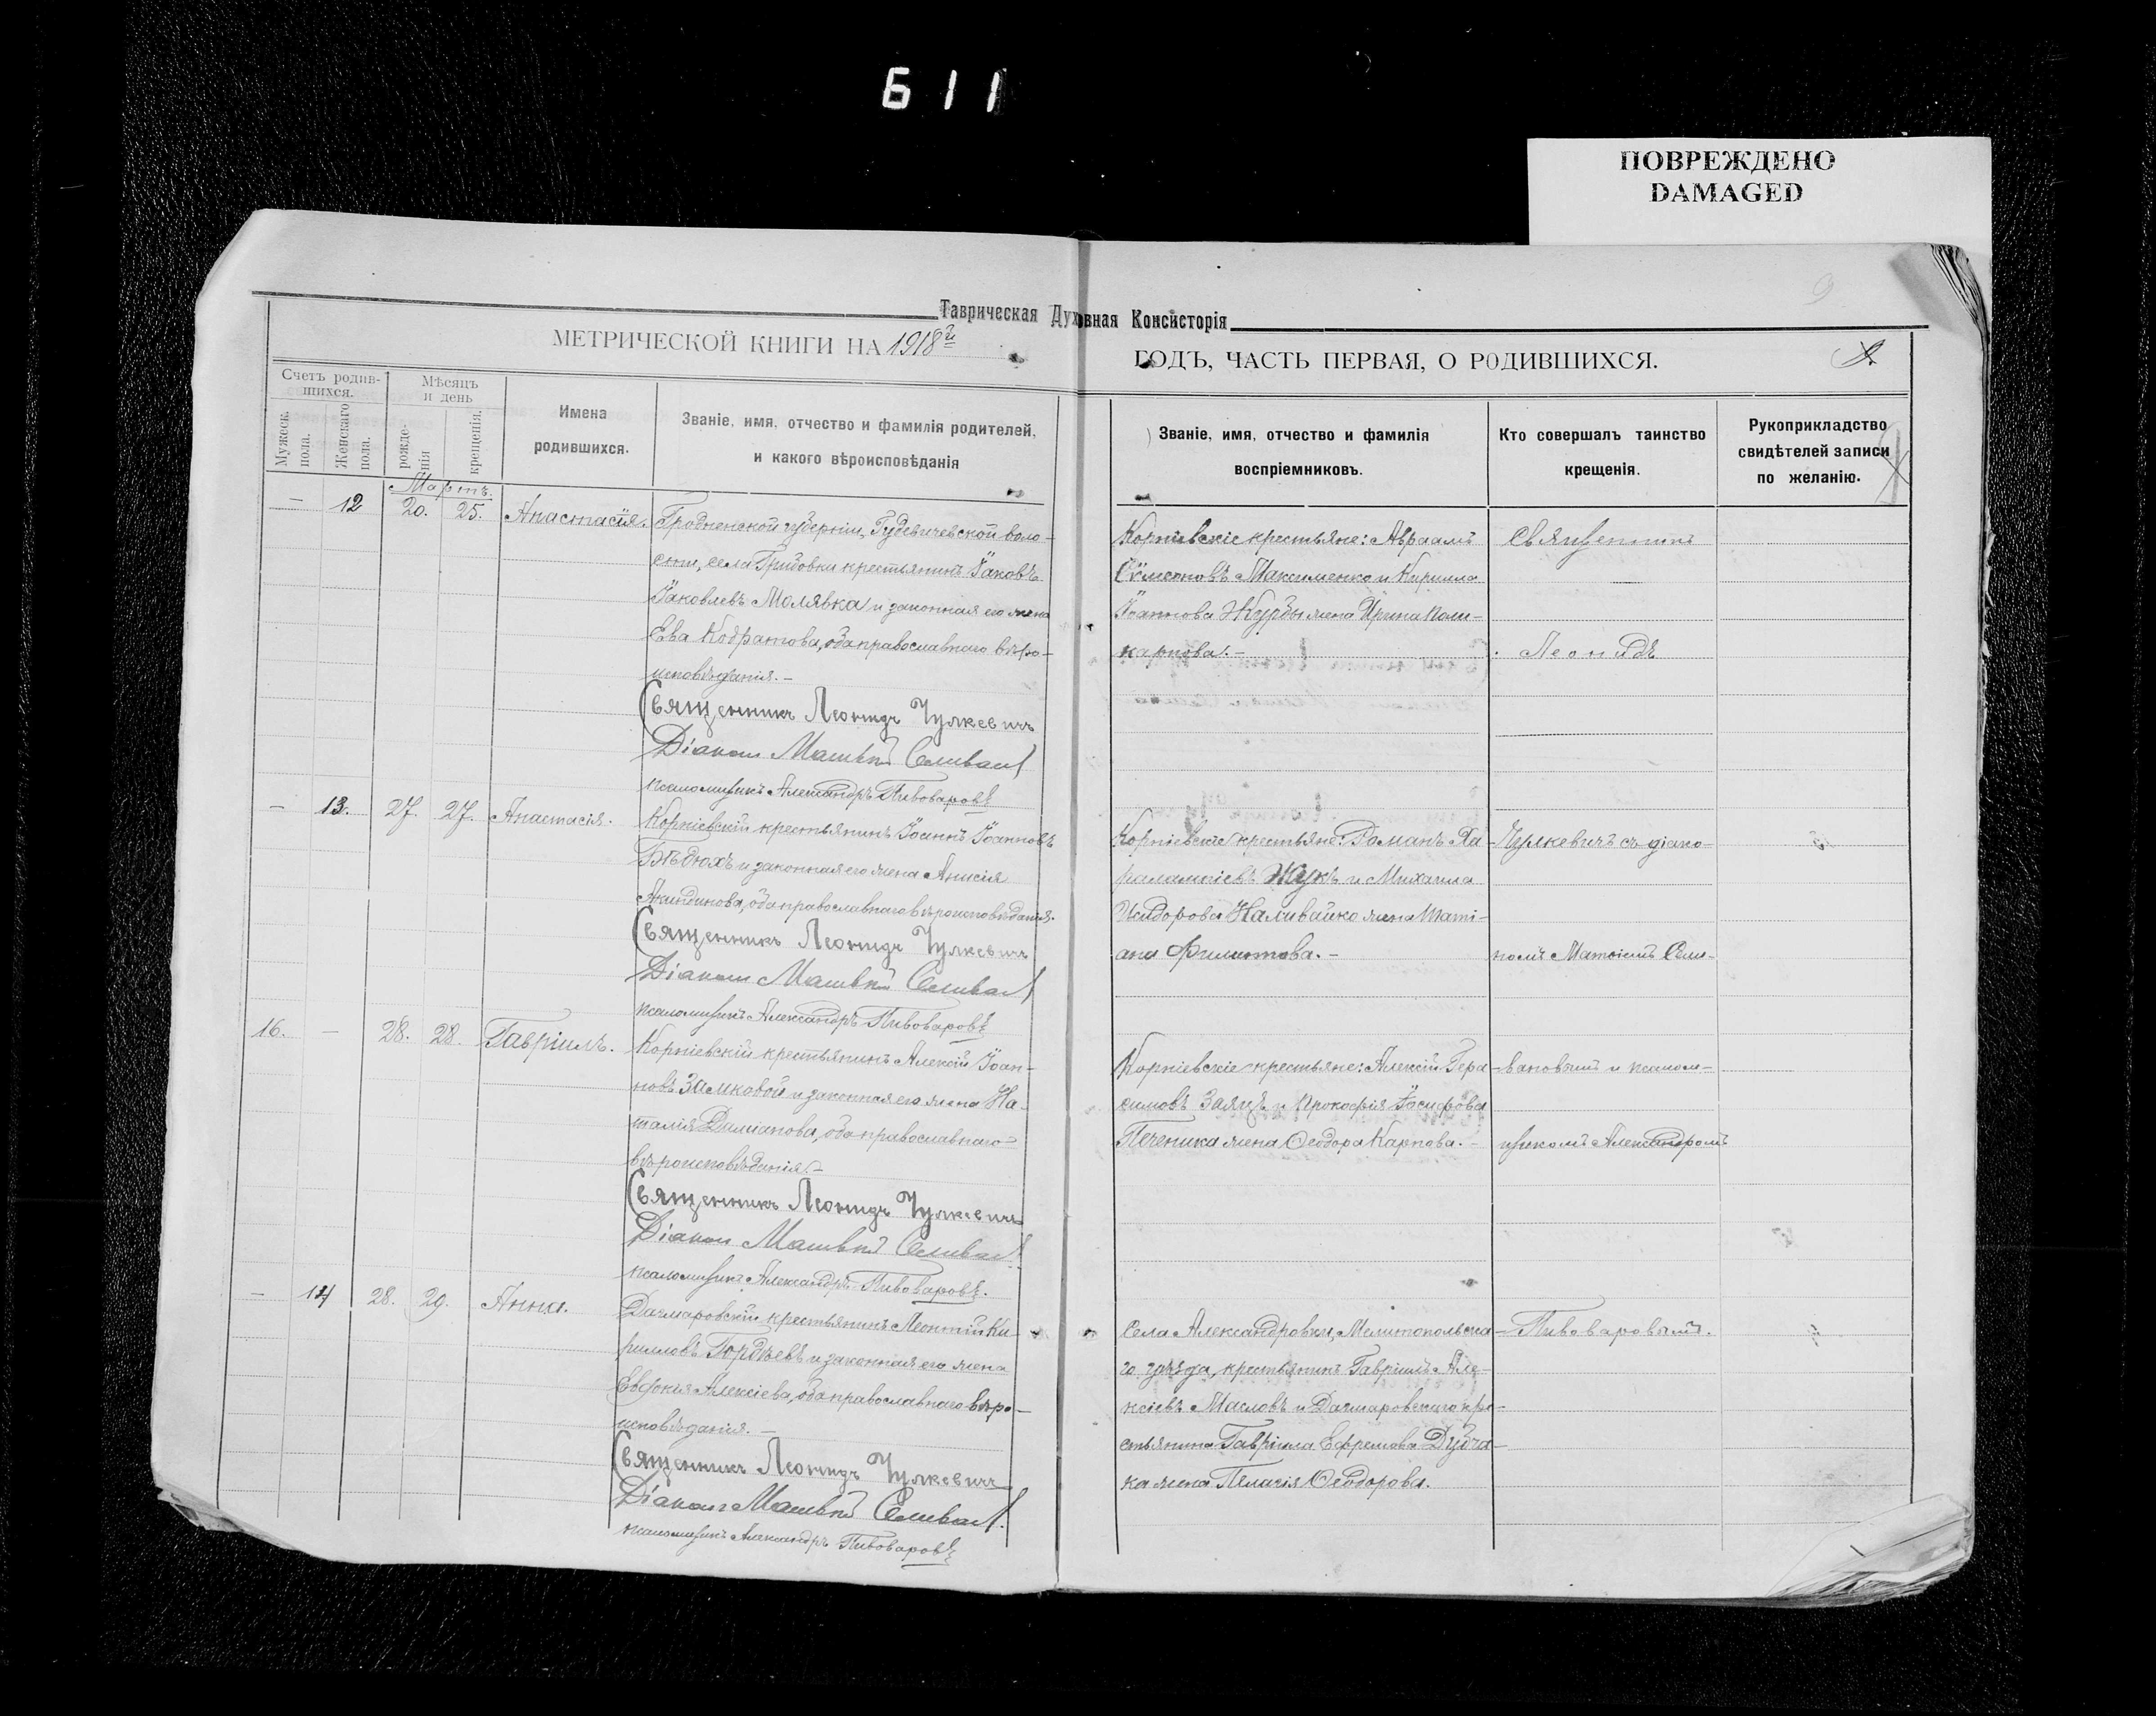 611
ПОВРЕЖДЕНО
DAMAGED
Таврическая Духовная Консисторія
МЕТРИЧЕСКОЙ КНИГИ НА 1918 й
ГОДЪ, ЧАСТЬ ПЕРВАЯ, О РОДИВШИХСЯ.
9
Счетъ родив-
шихся.
Мѣсяцъ
и день
Мужеск.
пола.
Женскаго
пола.
рожде-
нія
крещенія.
Имена
родившихся.
Званіе, имя, отчество и фамилія родителей,
и какого вѣроисповѣданія
Званіе, имя, отчество и фамилія
воспріемниковъ.
Кто совершалъ таинство
крещенія.
Рукоприкладство
свидѣтелей записи
по желанію.
Мартъ.
— 12 20. 25. Анастасія.
Гродненской губерніи, Гудевичевской воло-
сти, села Грибовки крестьянинъ Іаковъ
Іаковлевъ Молявка и законная его жена
Ева Кодратова, оба православнаго вѣро-
исповѣданія.-
Священникъ Леонидъ Чулкевичъ
Діаконъ Матѳей Селиван
псаломщикъ Александръ Пивоваровъ
Корніевскіе крестьяне: Авраамъ
Сѵмеоновъ Максименко и Кирилла
Іоаннова Журбы жена Ирина Поли-
карпова.-
Священникъ
Леонидъ
— 13. 27. 27. Анастасія.
Корніевскій крестьянинъ Іоаннъ Іоанновъ
Бѣдюхъ и законная его жена Анисія
Акиндинова, оба православнаго вѣроисповѣданія.
Священникъ Леонидъ Чулкевичъ
Діаконъ Матѳей Селиван
псаломщикъ Александръ Пивоваровъ
Корніевскіе крестьяне: Романъ Ха-
ралампіевъ Жукъ и Михаила
Исидорова Наливайко жена Таті-
ана Филиппова.-
Чулкевичъ съ діако-
номъ Матѳіемъ Сели-
16. — 28. 28. Гавріилъ.
Корніевскій крестьянинъ Алексій Іоан-
новъ Замковой и законная его жена На-
талія Даміанова, оба православнаго
вѣроисповѣданія.-
Священникъ Леонидъ Чулкевичъ
Діаконъ Матѳей Селиван
псаломщикъ Александръ Пивоваровъ.
Корніевскіе крестьяне: Алексій Гера-
симовъ Заяцъ и Прокофія Іосифова
Печеника жена Ѳеодора Карпова.-
вановымъ и псалом-
щикомъ Александромъ
— 14 28. 29. Анна.
Дагмаровскій крестьянинъ Леонтій Ки-
рилловъ Гордѣевъ и законная его жена
Евфимія Алексіева, оба православнаго вѣро-
исповѣданія.-
Священникъ Леонидъ Чулкевичъ
Діаконъ Матѳей Селиван.
псаломщикъ Александръ Пивоваровъ
Села Александровки, Мелитопольска-
го уѣзда, крестьянинъ Гавріилъ Але-
ксіевъ Масловъ и Дагмаровскаго кре-
стьянина Гавріила Ефремова Дубча-
ка жена Пелагія Ѳеодорова.
Пивоваровымъ.